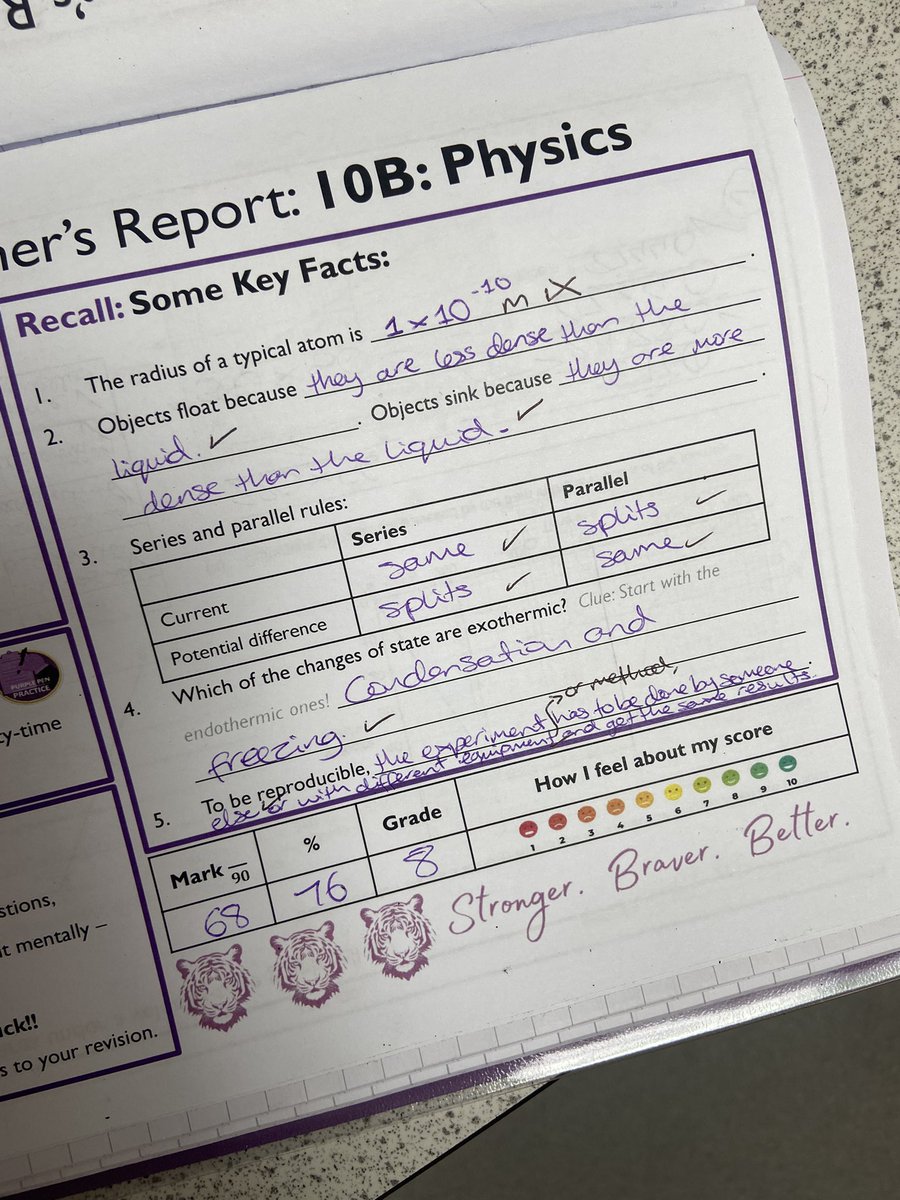 ner's Report: 10B: Physics
Recall: Some Key Facts:
1. The radius of a typical atom is 1 × 10⁻¹⁰ m
2. Objects float because they are less dense than the
liquid. ✓ . Objects sink because they are more
dense than the liquid. ✓ .
3. Series and parallel rules:
Series Parallel
Current same ✓ splits ✓
Potential difference splits ✓ same ✓
4. Which of the changes of state are exothermic? Clue: Start with the
endothermic ones! Condensation and
freezing. ✓
or method,
5. To be reproducible, the experiment has to be done by someone
else or with different equipment and get the same results.
Mark /90 % Grade How I feel about my score
1 2 3 4 5 6 7 8 9 10
68 76 8
Stronger. Braver. Better.
PURPLE PEN
PRACTICE
ty-time
stions,
t mentally –
ck!!
s to your revision.